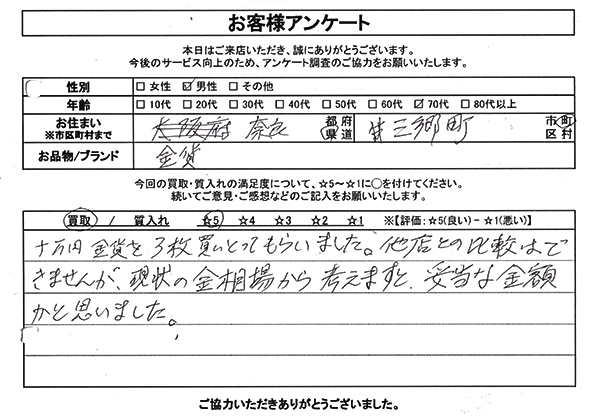 お客様アンケート
本日はご来店いただき、誠にありがとうございます。
今後のサービス向上のため、アンケート調査のご協力をお願いいたします。
性別 □女性 ☑男性 □その他
年齢 □10代 □20代 □30代 □40代 □50代 □60代 ☑70代 □80代以上
お住まい ※市区町村まで 大阪府 奈良 都府県道 三郷町 市町区村
お品物/ブランド 金貨
今回の買取・質入れの満足度について、☆5～☆1に○を付けてください。
続いてご意見・ご感想などのご記入をお願いいたします。
買取 / 質入れ ☆5 ☆4 ☆3 ☆2 ☆1 ※【評価:☆5(良い)-☆1(悪い)】
十万円金貨を3枚買いとってもらいました。他店との比較はで
きませんが、現状の金相場から考えますと、妥当な金額
かと思いました。
ご協力いただきありがとうございました。